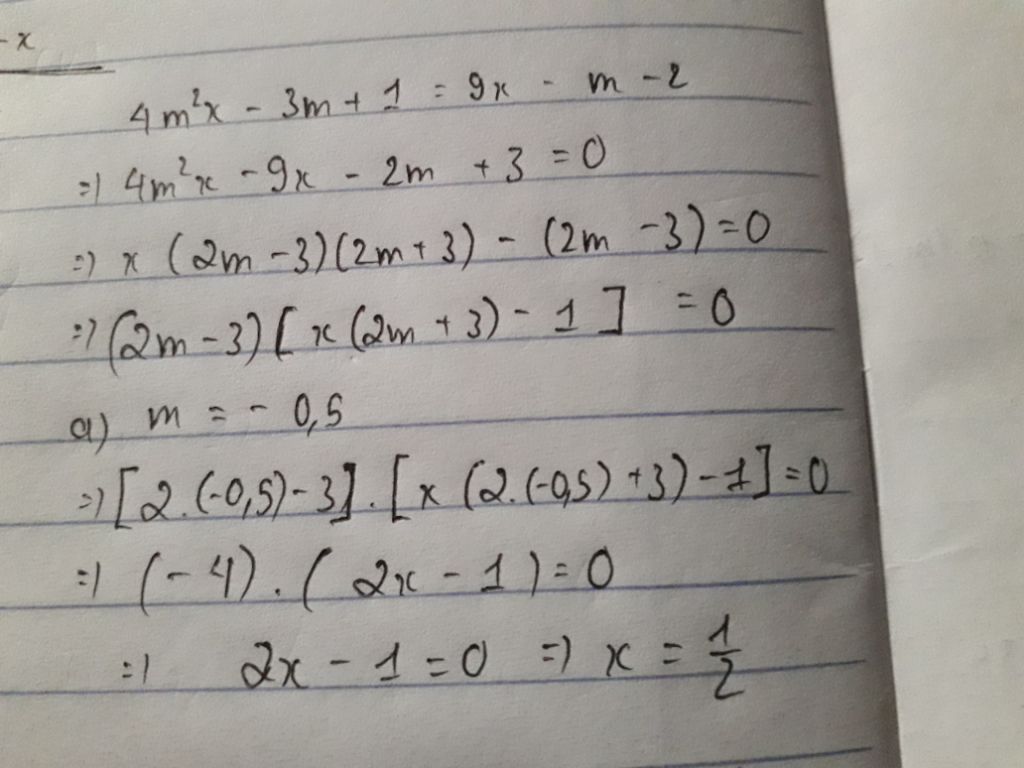 -x
4m²x - 3m + 1 = 9x - m - 2
=) 4m²x - 9x - 2m + 3 = 0
=) x (2m - 3)(2m + 3) - (2m - 3) = 0
=) (2m - 3) [ x (2m + 3) - 1 ] = 0
a) m = - 0,5
=) [2.(-0,5) - 3] . [x (2.(-0,5) + 3) - 1] = 0
=) (-4) . ( 2x - 1 ) = 0
=) 2x - 1 = 0 =) x = 1/2